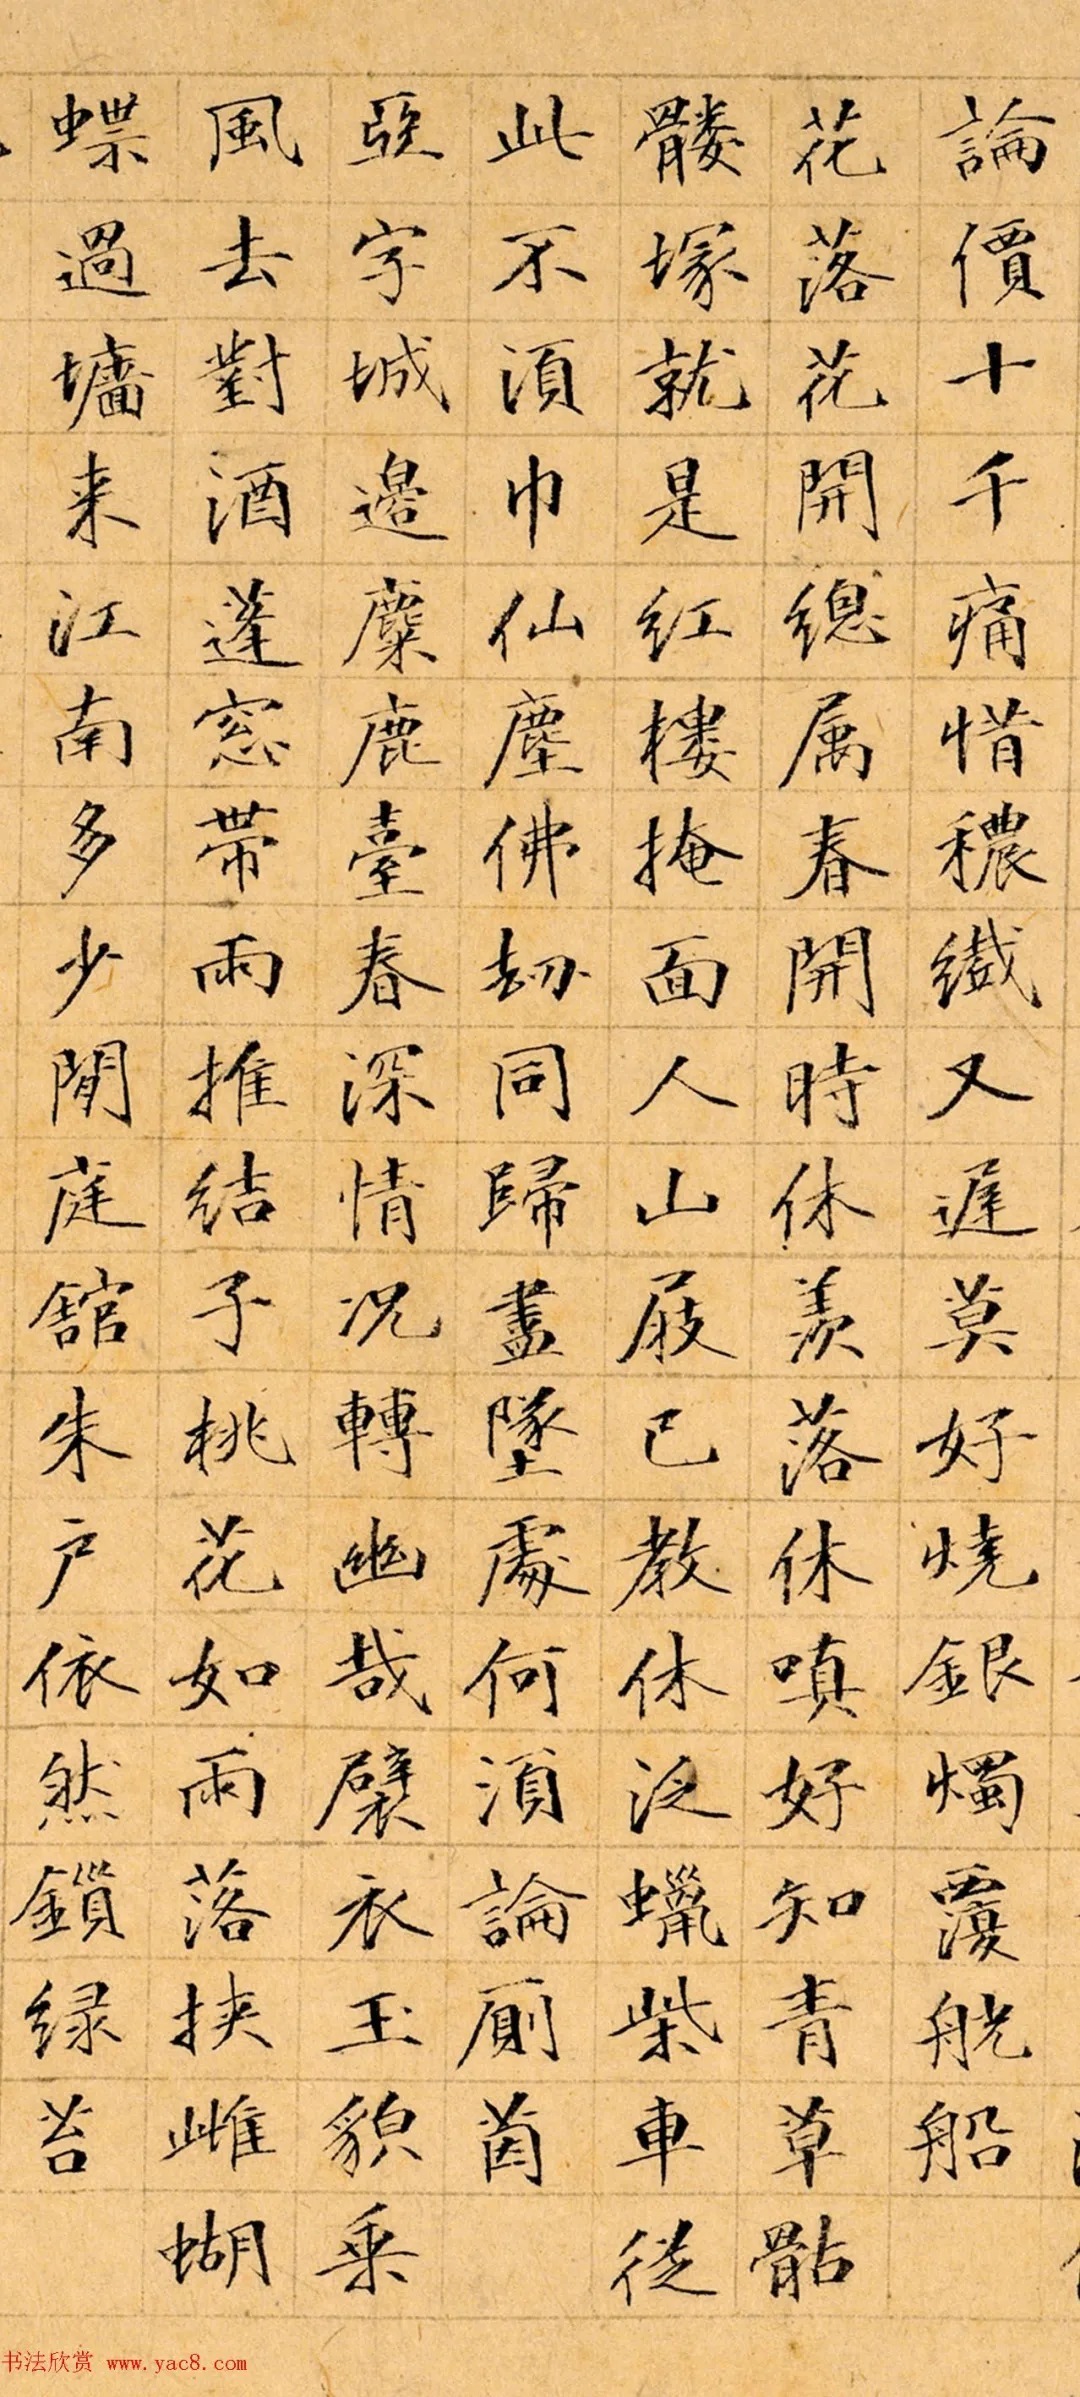 論價十千痛惜穠纖又遲莫好燒銀燭覆觥船
花落花開總属春開時休羨落休嗔好知青草骷
髅塚就是红樓掩面人山屐已教休泛蠟柴車從
此不須巾仙塵佛劫同歸盡墜處何須論厠茵
亞字城邊麋鹿臺春深情况轉幽哉襞衣玉貌乗
風去對酒蓬窓帶雨推结子桃花如雨落挟雌蝴
蝶過墻来江南多少閒庭舘朱户依然鎖绿苔
书法欣赏 www.yac8.com